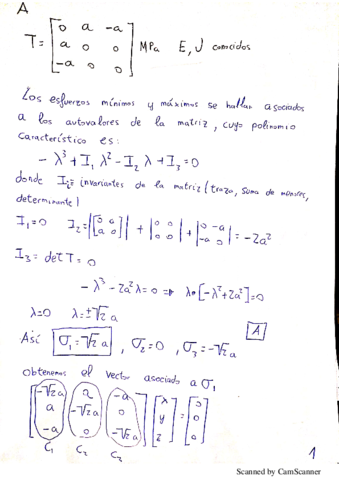 A
T = [0 a -a; a 0 0; -a 0 0] MPa E, ν conocidos
Los esfuerzos mínimos y máximos se hallan asociados
a los autovalores de la matriz, cuyo polinomio
característico es:
- λ³ + I₁ λ² - I₂ λ + I₃ = 0
donde Iᵢ = invariantes de la matriz (traza, suma de menores,
determinante)
I₁ = 0 I₂ = |0 a; a 0| + |0 0; 0 0| + |0 -a; -a 0| = -2a²
I₃ = det T = 0
- λ³ - 2a²λ = 0 ⇒ λ[-λ² + 2a²] = 0
λ = 0 λ = ±√2 a
A
Así σ₁ = √2 a , σ₂ = 0 , σ₃ = -√2 a
obtenemos el vector asociado a σ₁
[-√2 a a -a; a -√2 a 0; -a 0 -√2 a] [x; y; z] = [0; 0; 0]
C₁ C₂ C₃
1
Scanned by CamScanner